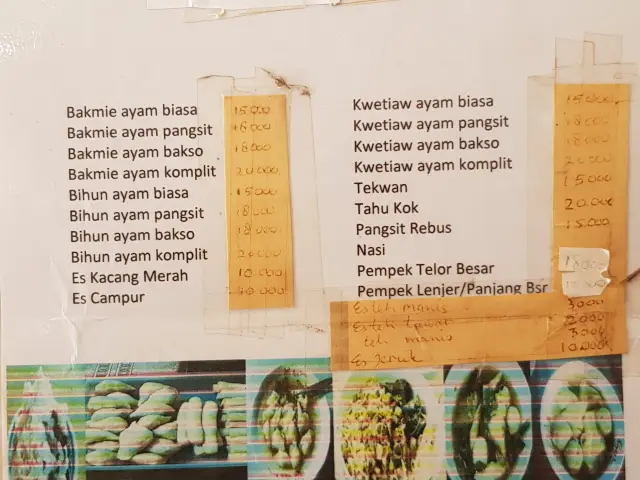 Bakmie ayam biasa 15000
Bakmie ayam pangsit 18000
Bakmie ayam bakso 18000
Bakmie ayam komplit 20.000
Bihun ayam biasa 15000
Bihun ayam pangsit 18000
Bihun ayam bakso 18.000
Bihun ayam komplit 20000
Es Kacang Merah 10.000
Es Campur
Kwetiaw ayam biasa 15000
Kwetiaw ayam pangsit 18000
Kwetiaw ayam bakso 18000
Kwetiaw ayam komplit 20000
Tekwan 15000
Tahu Kok 20.000
Pangsit Rebus 15.000
Nasi
Pempek Telor Besar
Pempek Lenjer/Panjang Bsr
Es teh manis 3000
Es teh tawar 2000
teh manis 3000
Es Jeruk 10.000